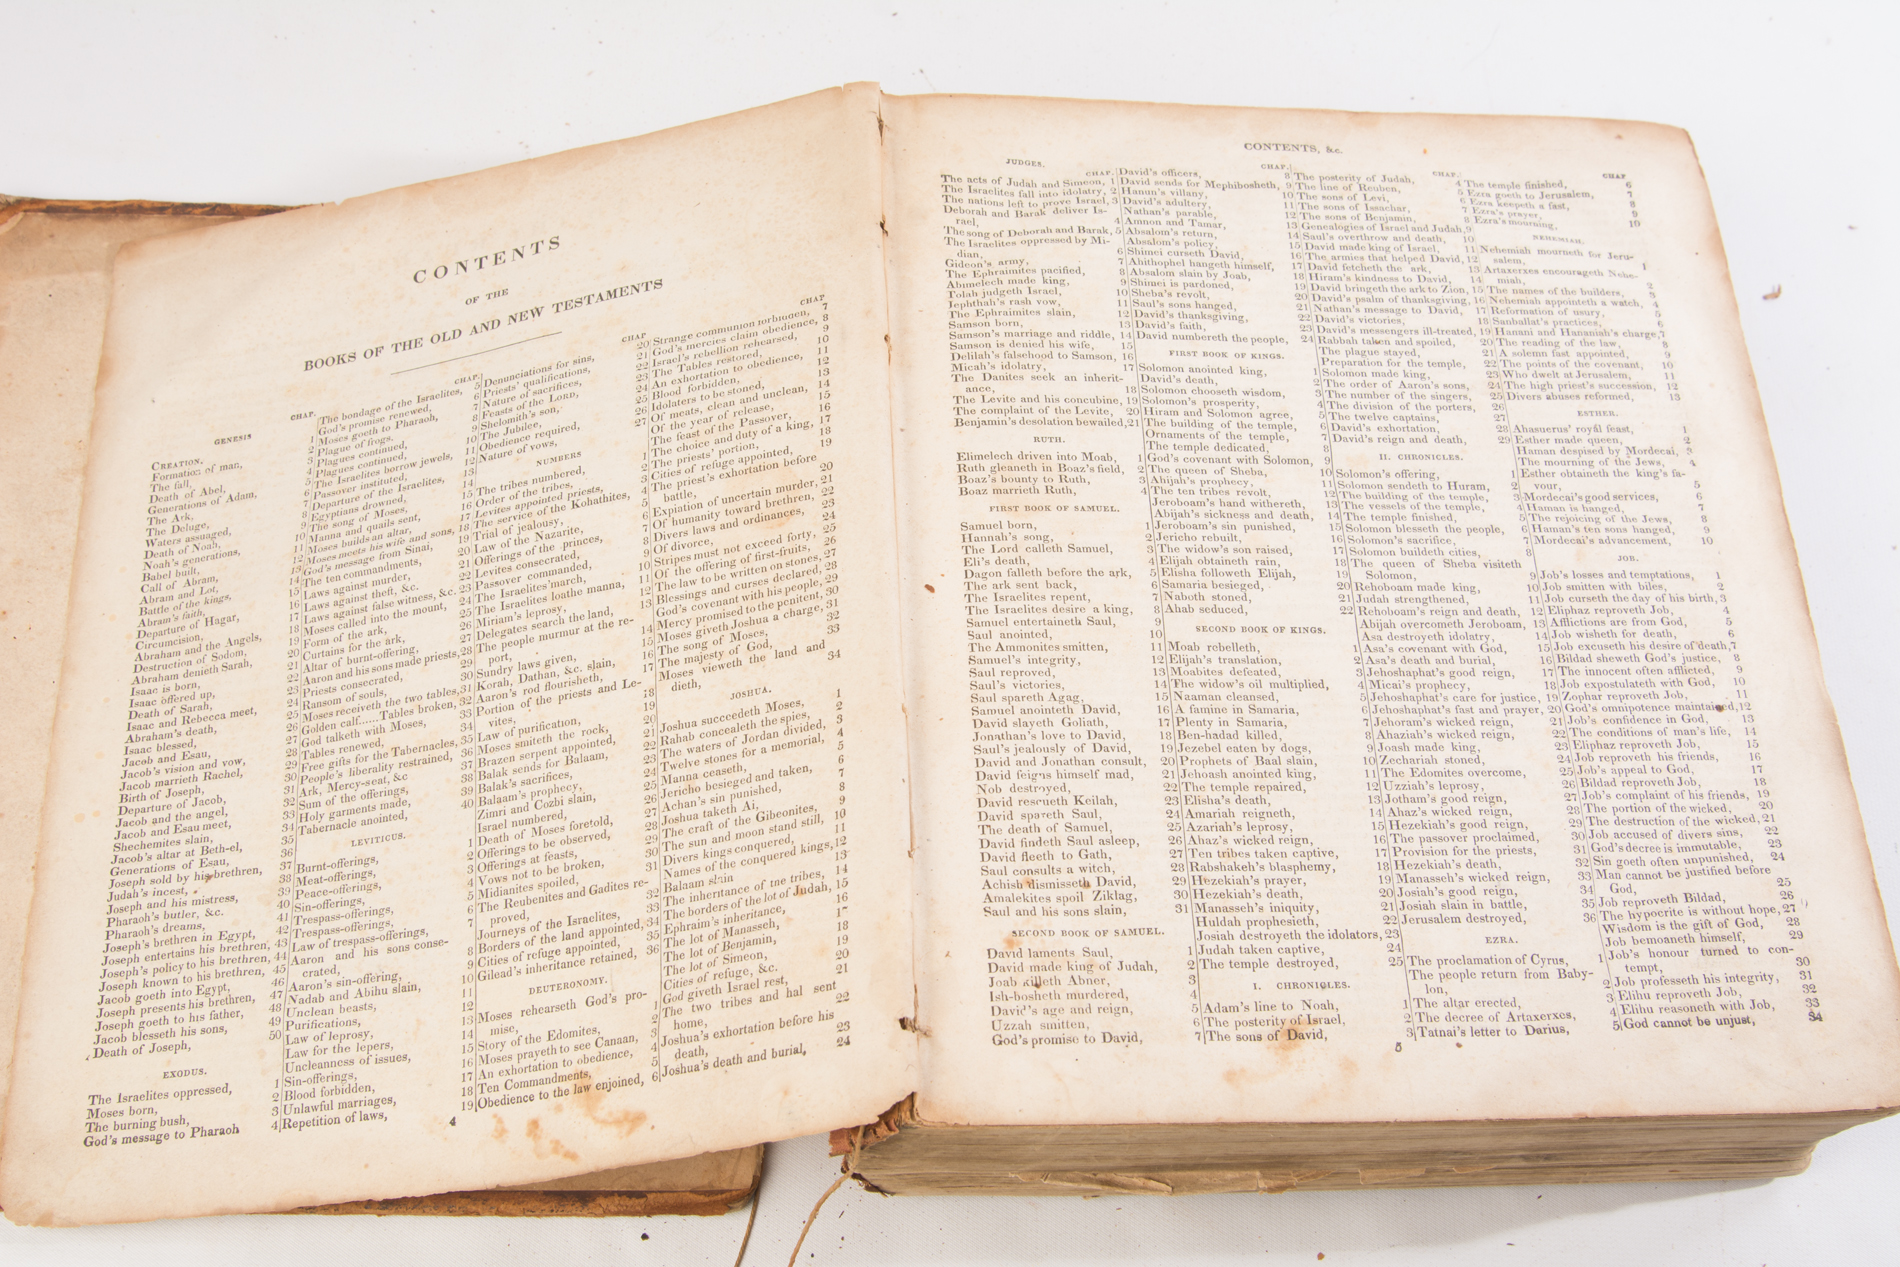 CONTENTS
OF THE
BOOKS OF THE OLD AND NEW TESTAMENTS
GENESIS
CHAP.
CREATION, 1
Formation of man, 2
The fall, 3
Death of Abel, 4
Generations of Adam, 5
The Ark, 6
The Deluge, 7
Waters assuaged, 8
Death of Noah, 9
Noah's generations, 10
Babel built, 11
Call of Abram, 12
Abram and Lot, 13
Battle of the kings, 14
Abram's faith, 15
Departure of Hagar, 16
Circumcision, 17
Abraham and the Angels, 18
Destruction of Sodom, 19
Abraham denieth Sarah, 20
Isaac is born, 21
Isaac offered up, 22
Death of Sarah, 23
Isaac and Rebecca meet, 24
Abraham's death, 25
Isaac blessed, 26
Jacob and Esau, 27
Jacob's vision and vow, 28
Jacob marrieth Rachel, 29
Birth of Joseph, 30
Departure of Jacob, 31
Jacob and the angel, 32
Jacob and Esau meet, 33
Shechemites slain, 34
Jacob's altar at Beth-el, 35
Generations of Esau, 36
Joseph sold by his brethren, 37
Judah's incest, 38
Joseph and his mistress, 39
Pharaoh's butler, &c. 40
Pharaoh's dreams, 41
Joseph's brethren in Egypt, 42
Joseph entertains his brethren, 43
Joseph's policy to his brethren, 44
Joseph known to his brethren, 45
Jacob goeth into Egypt, 46
Joseph presents his brethren, 47
Joseph goeth to his father, 48
Jacob blesseth his sons, 49
Death of Joseph, 50
EXODUS.
The Israelites oppressed, 1
Moses born, 2
The burning bush, 3
God's message to Pharaoh 4
CHAP.
The bondage of the Israelites, 5
God's promise renewed, 6
Moses goeth to Pharaoh, 7
Plague of frogs, 8
Plagues continued, 9
Plagues continued, 10
The Israelites borrow jewels, 11
Passover instituted, 12
Departure of the Israelites, 13
Egyptians drowned, 14
The song of Moses, 15
Manna and quails sent, 16
Moses builds an altar, 17
Moses meets his wife and sons, 18
God's message from Sinai, 19
The ten commandments, 20
Laws against murder, 21
Laws against theft, &c. 22
Laws against false witness, &c. 23
Moses called into the mount, 24
Form of the ark, 25
Curtains for the ark, 26
Altar of burnt-offering, 27
Aaron and his sons made priests, 28
Priests consecrated, 29
Ransom of souls, 30
Moses receiveth the two tables, 31
Golden calf.....Tables broken, 32
God talketh with Moses, 33
Tables renewed, 34
Free gifts for the Tabernacles, 35
People's liberality restrained, 36
Ark, Mercy-seat, &c 37
Sum of the offerings, 38
Holy garments made, 39
Tabernacle anointed, 40
LEVITICUS.
Burnt-offerings, 1
Meat-offerings, 2
Peace-offerings, 3
Sin-offerings, 4
Trespass-offerings, 5
Trespass-offerings, 6
Law of trespass-offerings, 7
Aaron and his sons conse-
crated, 8
Aaron's sin-offering, 9
Nadab and Abihu slain, 10
Unclean beasts, 11
Purifications, 12
Law of leprosy, 13
Law for the lepers, 14
Uncleanness of issues, 15
Sin-offerings, 16
Blood forbidden, 17
Unlawful marriages, 18
Repetition of laws, 19
4
CHAP
Denunciations for sins, 20
Priests' qualifications, 21
Nature of sacrifices, 22
Feasts of the LORD, 23
Shelomith's son, 24
The Jubilee, 25
Obedience required, 26
Nature of vows, 27
NUMBERS
The tribes numbered, 1
Order of the tribes, 2
Levites appointed priests, 3
The service of the Kohathites, 4
Trial of jealousy, 5
Law of the Nazarite, 6
Offerings of the princes, 7
Levites consecrated, 8
Passover commanded, 9
The Israelites' march, 10
The Israelites loathe manna, 11
Miriam's leprosy, 12
Delegates search the land, 13
The people murmur at the re-
port, 14
Sundry laws given, 15
Korah, Dathan, &c. slain, 16
Aaron's rod flourisheth, 17
Portion of the priests and Le-
vites, 18
Law of purification, 19
Moses smiteth the rock, 20
Brazen serpent appointed, 21
Balak sends for Balaam, 22
Balak's sacrifices, 23
Balaam's prophecy, 24
Zimri and Cozbi slain, 25
Israel numbered, 26
Death of Moses foretold, 27
Offerings to be observed, 28
Offerings at feasts, 29
Vows not to be broken, 30
Midianites spoiled, 31
The Reubenites and Gadites re-
proved, 32
Journeys of the Israelites, 33
Borders of the land appointed, 34
Cities of refuge appointed, 35
Gilead's inheritance retained, 36
DEUTERONOMY.
Moses rehearseth God's pro-
mise, 1
Story of the Edomites, 2
Moses prayeth to see Canaan, 3
An exhortation to obedience, 4
Ten Commandments, 5
Obedience to the law enjoined, 6
CHAP
Strange communion forbidden, 7
God's mercies claim obedience, 8
Israel's rebellion rehearsed, 9
The Tables restored, 10
An exhortation to obedience, 11
Blood forbidden, 12
Idolaters to be stoned, 13
Of meats, clean and unclean, 14
Of the year of release, 15
The feast of the Passover, 16
The choice and duty of a king, 17
The priests' portion, 18
Cities of refuge appointed, 19
The priest's exhortation before
battle, 20
Expiation of uncertain murder, 21
Of humanity toward brethren, 22
Divers laws and ordinances, 23
Of divorce, 24
Stripes must not exceed forty, 25
Of the offering of first-fruits, 26
The law to be written on stones, 27
Blessings and curses declared, 28
God's covenant with his people, 29
Mercy promised to the penitent, 30
Moses giveth Joshua a charge, 31
The song of Moses, 32
The majesty of God, 33
Moses vieweth the land and
dieth, 34
JOSHUA.
Joshua succeedeth Moses, 1
Rahab concealeth the spies, 2
The waters of Jordan divided, 3
Twelve stones for a memorial, 4
Manna ceaseth, 5
Jericho besieged and taken, 6
Achan's sin punished, 7
Joshua taketh Ai, 8
The craft of the Gibeonites, 9
The sun and moon stand still, 10
Divers kings conquered, 11
Names of the conquered kings, 12
Balaam slain 13
The inheritance of the tribes, 14
The borders of the lot of Judah, 15
Ephraim's inheritance, 16
The lot of Manasseh, 17
The lot of Benjamin, 18
The lot of Simeon, 19
Cities of refuge, &c. 20
God giveth Israel rest, 21
The two tribes and hal sent
home, 22
Joshua's exhortation before his
death, 23
Joshua's death and burial, 24
CONTENTS, &c.
JUDGES.
CHAP.
The acts of Judah and Simeon, 1
The Israelites fall into idolatry, 2
The nations left to prove Israel, 3
Deborah and Barak deliver Is-
rael, 4
The song of Deborah and Barak, 5
The Israelites oppressed by Mi-
dian, 6
Gideon's army, 7
The Ephraimites pacified, 8
Abimelech made king, 9
Tolah judgeth Israel, 10
Jephthah's rash vow, 11
The Ephraimites slain, 12
Samson born, 13
Samson's marriage and riddle, 14
Samson is denied his wife, 15
Delilah's falsehood to Samson, 16
Micah's idolatry, 17
The Danites seek an inherit-
ance, 18
The Levite and his concubine, 19
The complaint of the Levite, 20
Benjamin's desolation bewailed, 21
RUTH.
Elimelech driven into Moab, 1
Ruth gleaneth in Boaz's field, 2
Boaz's bounty to Ruth, 3
Boaz marrieth Ruth, 4
FIRST BOOK OF SAMUEL.
Samuel born, 1
Hannah's song, 2
The Lord calleth Samuel, 3
Eli's death, 4
Dagon falleth before the ark, 5
The ark sent back, 6
The Israelites repent, 7
The Israelites desire a king, 8
Samuel entertaineth Saul, 9
Saul anointed, 10
The Ammonites smitten, 11
Samuel's integrity, 12
Saul reproved, 13
Saul's victories, 14
Saul spareth Agag, 15
Samuel anointeth David, 16
David slayeth Goliath, 17
Jonathan's love to David, 18
Saul's jealously of David, 19
David and Jonathan consult, 20
David feigns himself mad, 21
Nob destroyed, 22
David rescueth Keilah, 23
David spareth Saul, 24
The death of Samuel, 25
David findeth Saul asleep, 26
David fleeth to Gath, 27
Saul consults a witch, 28
Achish dismisseth David, 29
Amalekites spoil Ziklag, 30
Saul and his sons slain, 31
SECOND BOOK OF SAMUEL.
David laments Saul, 1
David made king of Judah, 2
Joab killeth Abner, 3
Ish-bosheth murdered, 4
David's age and reign, 5
Uzzah smitten, 6
God's promise to David, 7
CHAP.
David's officers, 8
David sends for Mephibosheth, 9
Hanun's villany, 10
David's adultery, 11
Nathan's parable, 12
Amnon and Tamar, 13
Absalom's return, 14
Absalom's policy, 15
Shimei curseth David, 16
Ahithophel hangeth himself, 17
Absalom slain by Joab, 18
Shimei is pardoned, 19
Sheba's revolt, 20
Saul's sons hanged, 21
David's thanksgiving, 22
David's faith, 23
David numbereth the people, 24
FIRST BOOK OF KINGS.
Solomon anointed king, 1
David's death, 2
Solomon chooseth wisdom, 3
Solomon's prosperity, 4
Hiram and Solomon agree, 5
The building of the temple, 6
Ornaments of the temple, 7
The temple dedicated, 8
God's covenant with Solomon, 9
The queen of Sheba, 10
Abijah's prophecy, 11
The ten tribes revolt, 12
Jeroboam's hand withereth, 13
Abijah's sickness and death, 14
Jeroboam's sin punished, 15
Jericho rebuilt, 16
The widow's son raised, 17
Elijah obtaineth rain, 18
Elisha followeth Elijah, 19
Samaria besieged, 20
Naboth stoned, 21
Ahab seduced, 22
SECOND BOOK OF KINGS.
Moab rebelleth, 1
Elijah's translation, 2
Moabites defeated, 3
The widow's oil multiplied, 4
Naaman cleansed, 5
A famine in Samaria, 6
Plenty in Samaria, 7
Ben-hadad killed, 8
Jezebel eaten by dogs, 9
Prophets of Baal slain, 10
Jehoash anointed king, 11
The temple repaired, 12
Elisha's death, 13
Amariah reigneth, 14
Azariah's leprosy, 15
Ahaz's wicked reign, 16
Ten tribes taken captive, 17
Rabshakeh's blasphemy, 18
Hezekiah's prayer, 19
Hezekiah's death, 20
Manasseh's iniquity, 21
Huldah prophesieth, 22
Josiah destroyeth the idolators, 23
Judah taken captive, 24
The temple destroyed, 25
I. CHRONICLES.
Adam's line to Noah, 1
The posterity of Israel, 2
The sons of David, 3
5
CHAP.
The posterity of Judah, 4
The line of Reuben, 5
The sons of Levi, 6
The sons of Issachar, 7
The sons of Benjamin, 8
Genealogies of Israel and Judah, 9
Saul's overthrow and death, 10
David made king of Israel, 11
The armies that helped David, 12
David fetcheth the ark, 13
Hiram's kindness to David, 14
David bringeth the ark to Zion, 15
David's psalm of thanksgiving, 16
Nathan's message to David, 17
David's victories, 18
David's messengers ill-treated, 19
Rabbah taken and spoiled, 20
The plague stayed, 21
Preparation for the temple, 22
Solomon made king, 23
The order of Aaron's sons, 24
The number of the singers, 25
The division of the porters, 26
The twelve captains, 27
David's exhortation, 28
David's reign and death, 29
II. CHRONICLES.
Solomon's offering, 1
Solomon sendeth to Huram, 2
The building of the temple, 3
The vessels of the temple, 4
The temple finished, 5
Solomon blesseth the people, 6
Solomon's sacrifice, 7
Solomon buildeth cities, 8
The queen of Sheba visiteth
Solomon, 9
Rehoboam made king, 10
Judah strengthened, 11
Rehoboam's reign and death, 12
Abijah overcometh Jeroboam, 13
Asa destroyeth idolatry, 14
Asa's covenant with God, 15
Asa's death and burial, 16
Jehoshaphat's good reign, 17
Micai's prophecy, 18
Jehoshaphat's care for justice, 19
Jehoshaphat's fast and prayer, 20
Jehoram's wicked reign, 21
Ahaziah's wicked reign, 22
Joash made king, 23
Zechariah stoned, 24
The Edomites overcome, 25
Uzziah's leprosy, 26
Jotham's good reign, 27
Ahaz's wicked reign, 28
Hezekiah's good reign, 29
The passover proclaimed, 30
Provision for the priests, 31
Hezekiah's death, 32
Manasseh's wicked reign, 33
Josiah's good reign, 34
Josiah slain in battle, 35
Jerusalem destroyed, 36
EZRA.
The proclamation of Cyrus, 1
The people return from Baby-
lon, 2
The altar erected, 3
The decree of Artaxerxes, 4
Tatnai's letter to Darius, 5
CHAP
The temple finished, 6
Ezra goeth to Jerusalem, 7
Ezra keepeth a fast, 8
Ezra's prayer, 9
Ezra's mourning, 10
NEHEMIAH.
Nehemiah mourneth for Jeru-
salem, 1
Artaxerxes encourageth Nehe-
miah, 2
The names of the builders, 3
Nehemiah appointeth a watch, 4
Reformation of usury, 5
Sanballat's practices, 6
Hanani and Hananiah's charge, 7
The reading of the law, 8
A solemn fast appointed, 9
The points of the covenant, 10
Who dwelt at Jerusalem, 11
The high priest's succession, 12
Divers abuses reformed, 13
ESTHER.
Ahasuerus' royal feast, 1
Esther made queen, 2
Haman despised by Mordecai, 3
The mourning of the Jews, 4
Esther obtaineth the king's fa-
vour, 5
Mordecai's good services, 6
Haman is hanged, 7
The rejoicing of the Jews, 8
Haman's ten sons hanged, 9
Mordecai's advancement, 10
JOB.
Job's losses and temptations, 1
Job smitten with biles, 2
Job curseth the day of his birth, 3
Eliphaz reproveth Job, 4
Afflictions are from God, 5
Job wisheth for death, 6
Job excuseth his desire of death, 7
Bildad sheweth God's justice, 8
The innocent often afflicted, 9
Job expostulateth with God, 10
Zophar reproveth Job, 11
God's omnipotence maintained, 12
Job's confidence in God, 13
The conditions of man's life, 14
Eliphaz reproveth Job, 15
Job reproveth his friends, 16
Job's appeal to God, 17
Bildad reproveth Job, 18
Job's complaint of his friends, 19
The portion of the wicked, 20
The destruction of the wicked, 21
Job accused of divers sins, 22
God's decree is immutable, 23
Sin goeth often unpunished, 24
Man cannot be justified before
God, 25
Job reproveth Bildad, 26
The hypocrite is without hope, 27
Wisdom is the gift of God, 28
Job bemoaneth himself, 29
Job's honour turned to con-
tempt, 30
Job professeth his integrity, 31
Elihu reproveth Job, 32
Elihu reasoneth with Job, 33
God cannot be unjust, 34